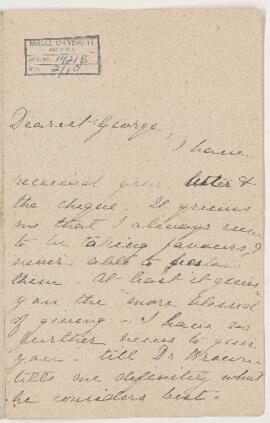 McGILL UNIVERSITY
ARCHIVES
ACC. NO. 1421B
REF. 2/15
Dearest George,
I have
received your letter &
the cheque. It grieves
me that I always seem
to be taking favours &
never able to
them. At least it gives
you the more blessed
of giving — I have no
further news to give
you — till Dr Brown
tells me definitely what
he considers best =